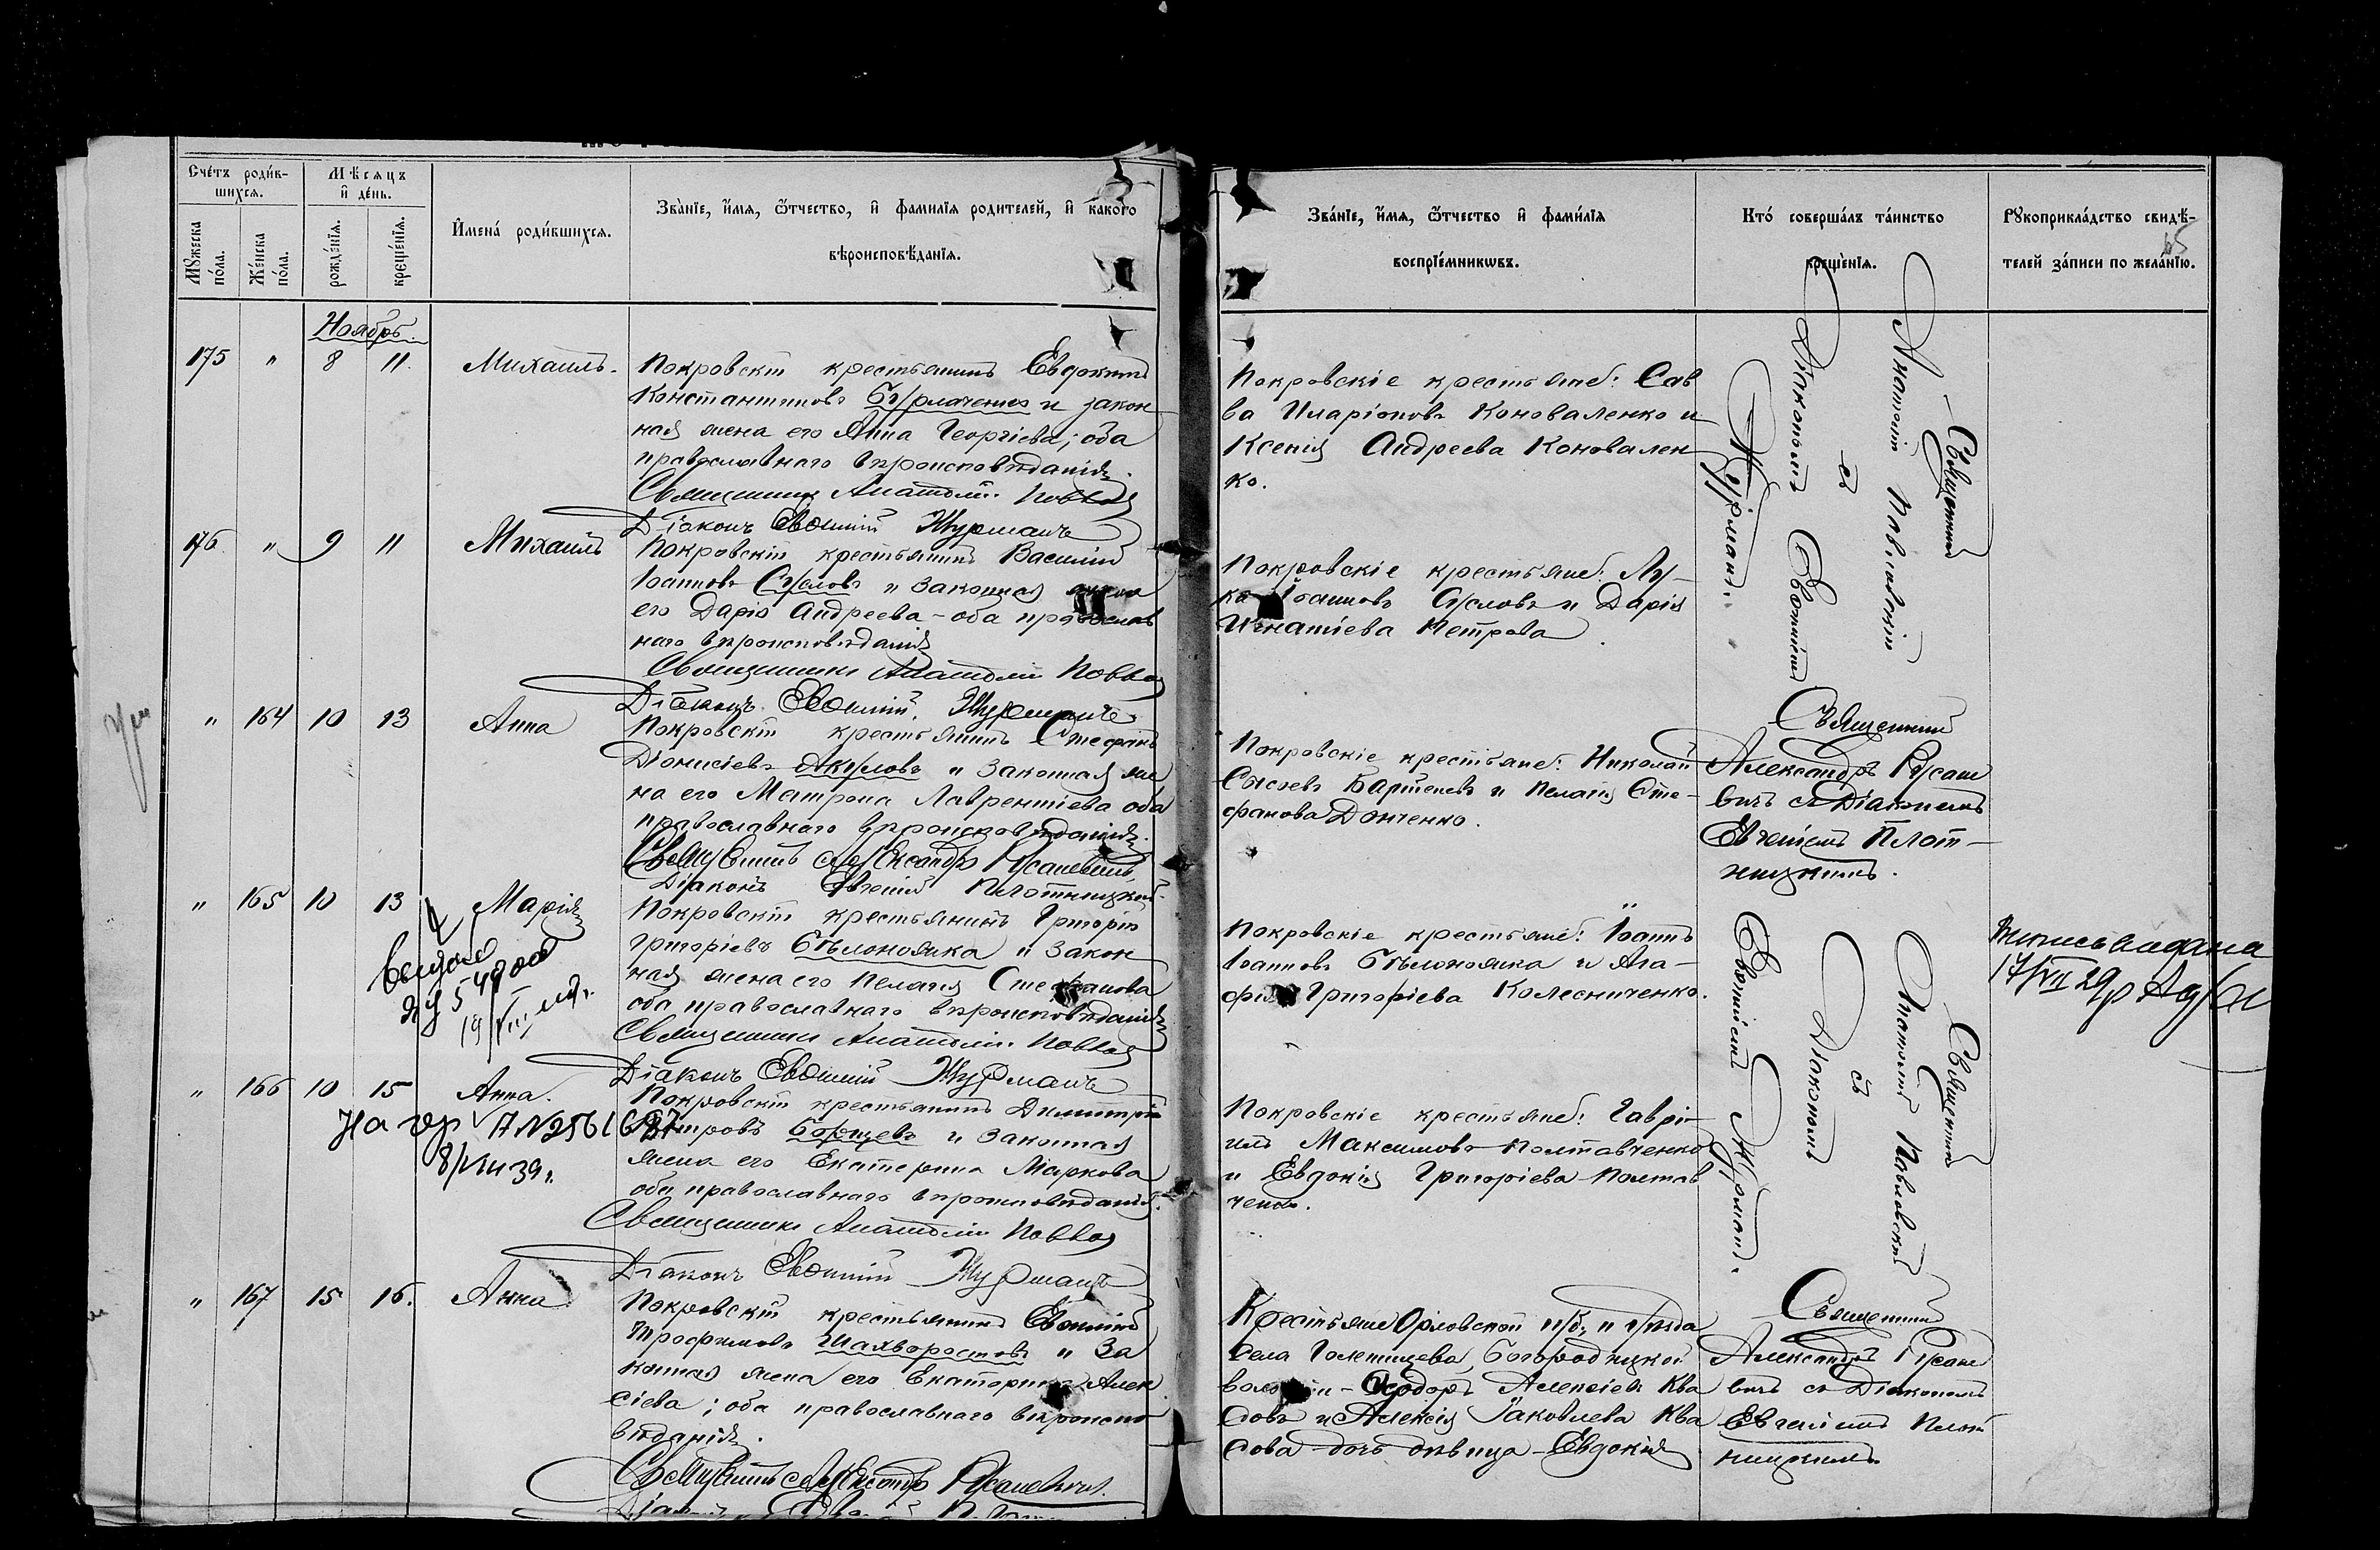 Счетъ родив-
шихся.
Мѣсяцъ
и день.
Мужеска
пола.
Женска
пола.
рожденія.
крещенія.
Имена родившихся.
Званіе, имя, отчество, и фамилія родителей, и какого
вѣроисповѣданія.
Званіе, имя, отчество и фамилія
воспріемниковъ.
Кто совершалъ таинство
крещенія.
Рукоприкладство свидѣ-
телей записи по желанію.
Ноябрь.
175 " 8 11. Михаилъ.
Покровскій крестьянинъ Евдокимъ
Константиновъ Бурлаченко и закон
ная жена его Анна Георгіева; оба
православнаго вѣроисповѣданія.
Священникъ Анатолій
Діаконъ Евѳимій Журманъ
Покровскіе крестьяне: Сав
ва Иларіоновъ Коноваленко и
Ксенія Андреева Коновален
ко.
Священникъ
Анатолій Павловскій
съ
Діакономъ Евѳиміемъ
Журманъ.
176 " 9 11 Михаилъ
Покровскій крестьянинъ Василій
Іоанновъ Сусловъ и законная жена
его Дарія Андреева - оба православ
наго вѣроисповѣданія
Священникъ Анатолій
Діаконъ Евѳимій Журманъ
Покровскіе крестьяне: Лу-
ка Іоанновъ Сусловъ и Дарія
Игнатіева Петрова
" 164 10 13 Анна
Покровскій крестьянинъ Стефанъ
Діонисіевъ Акуловъ и законная же
на его Матрона Лаврентіева оба
православнаго вѣроисповѣданія.
Священникъ Александръ Русаневичъ
Діаконъ Евгеній Плотницкій
Покровскіе крестьяне: Николай
Сысоевъ и Пелагія Сте-
фанова Донченко.
Священникъ
Александръ Русане
вичъ съ Діакономъ
Евгеніемъ Плот-
ницкимъ.
" 165 10 13 Марія
Покровскій крестьянинъ Григорій
Григорієвъ Бѣлоножка и закон
ная жена его Пелагія Стефанова
оба православнаго вѣроисповѣданія
Священникъ Анатолій
Діаконъ Евѳимій Журманъ
Покровскіе крестьяне: Іоаннъ
Іоанновъ Бѣлоножка и Ага-
фія Григоріева Колесниченко.
Священникъ
Анатолій Павловскій
съ
Діакономъ
Евѳиміемъ Журманъ.
17/VII 29
" 166 10 15 Анна.
8/VIII 39г.
Покровскій крестьянинъ Димитрій
Петровъ Борщевъ и законная
жена его Екатерина Маркова
оба православнаго вѣроисповѣданія.
Священникъ Анатолій
Діаконъ Евѳимій Журманъ
Покровскіе крестьяне: Гаврі-
илъ Максимовъ Полтавченко
и Евдокія Григоріева Полтав
ченко.
" 167 15 16. Анна
Покровскій крестьянинъ Евѳимій
Трофимовъ Шахворостовъ и за
конная жена его Екатерина Алек
сіева; оба православнаго вѣроиспо
вѣданія.
Священникъ Александръ Русаневичъ.
Крестьяне Орловской губ. и уѣзда
села Голенищева, Богородицкой
волости - Ѳеодоръ Алексіевъ Ква
совъ и Алексія Іаковлева Ква
сова дочь дѣвица Евдокія
Священникъ
Александръ Русане
вичъ съ Діакономъ
Евгеніемъ Плот
ницкимъ.